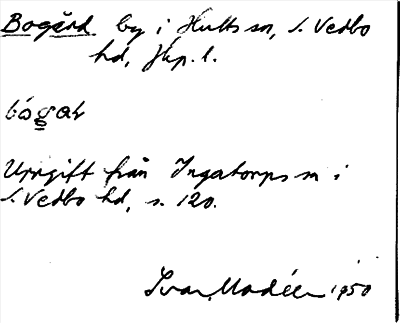 Bogård by i Hults sn, S. Vedbo
hd, Jkp. l.
bógaʀ
Uppgift från Ingatorps sn i
S. Vedbo hd, s. 120.
Ivar Modéer 1950